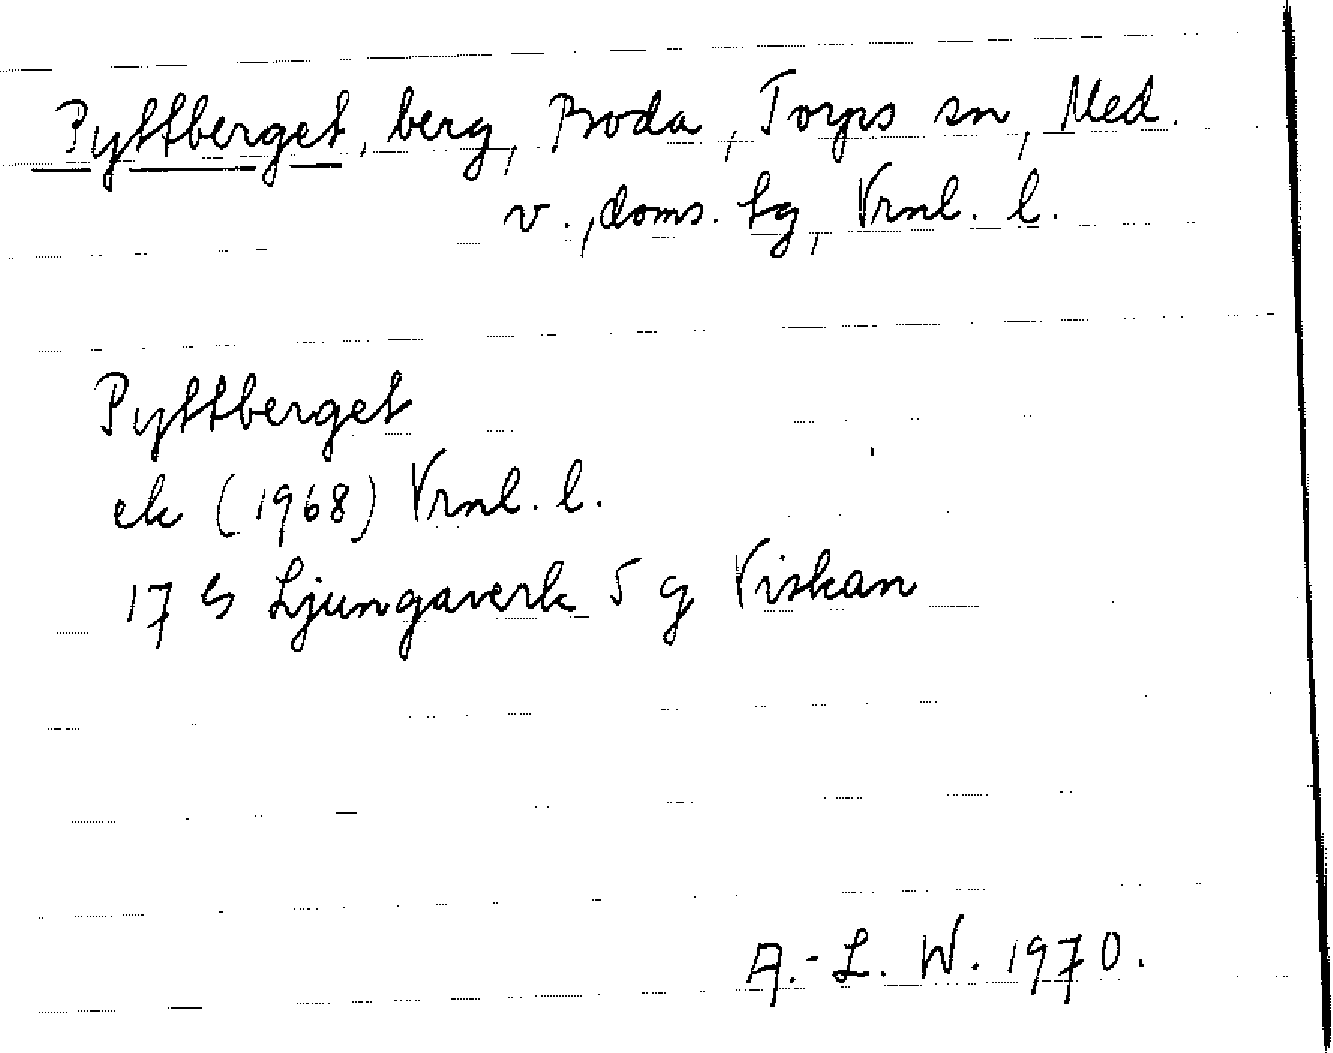 Pyttberget, berg, Boda, Torps sn, Med.
v., doms. tg, Vrnl. l.
Pyttberget
ek (1968) Vrnl. l.
17 G Ljungaverk 5 g Viskan
A.-L. W. 1970.